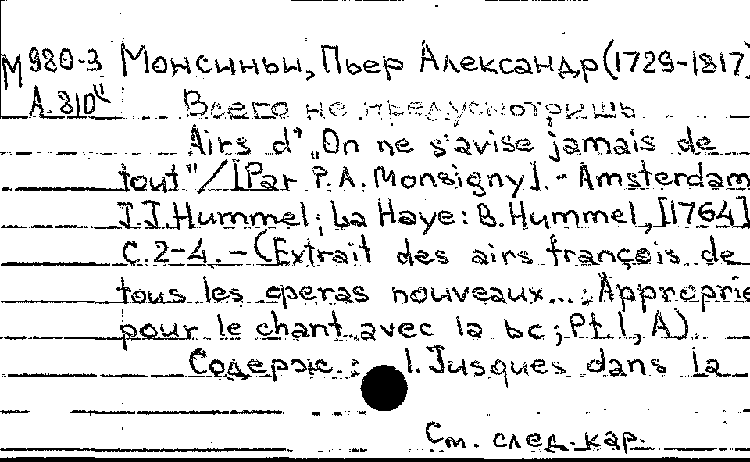 М 980-3 Монсиньи, Пьер Александр (1729-1817)
А.810" Всего не предусмотришь
Airs d' „On ne s'avise jamais de
tout" / [Par P.A. Monsigny]. - Amsterdam
J.J. Hummel; La Haye: B. Hummel, [1764]
С. 2-4. - (Extrait des airs françois de
tous les operas nouveaux...; Approprie
pour le chant avec la bc; Pt 1, A).
Содерж.: 1. Jusques dans la
См. след. кар.